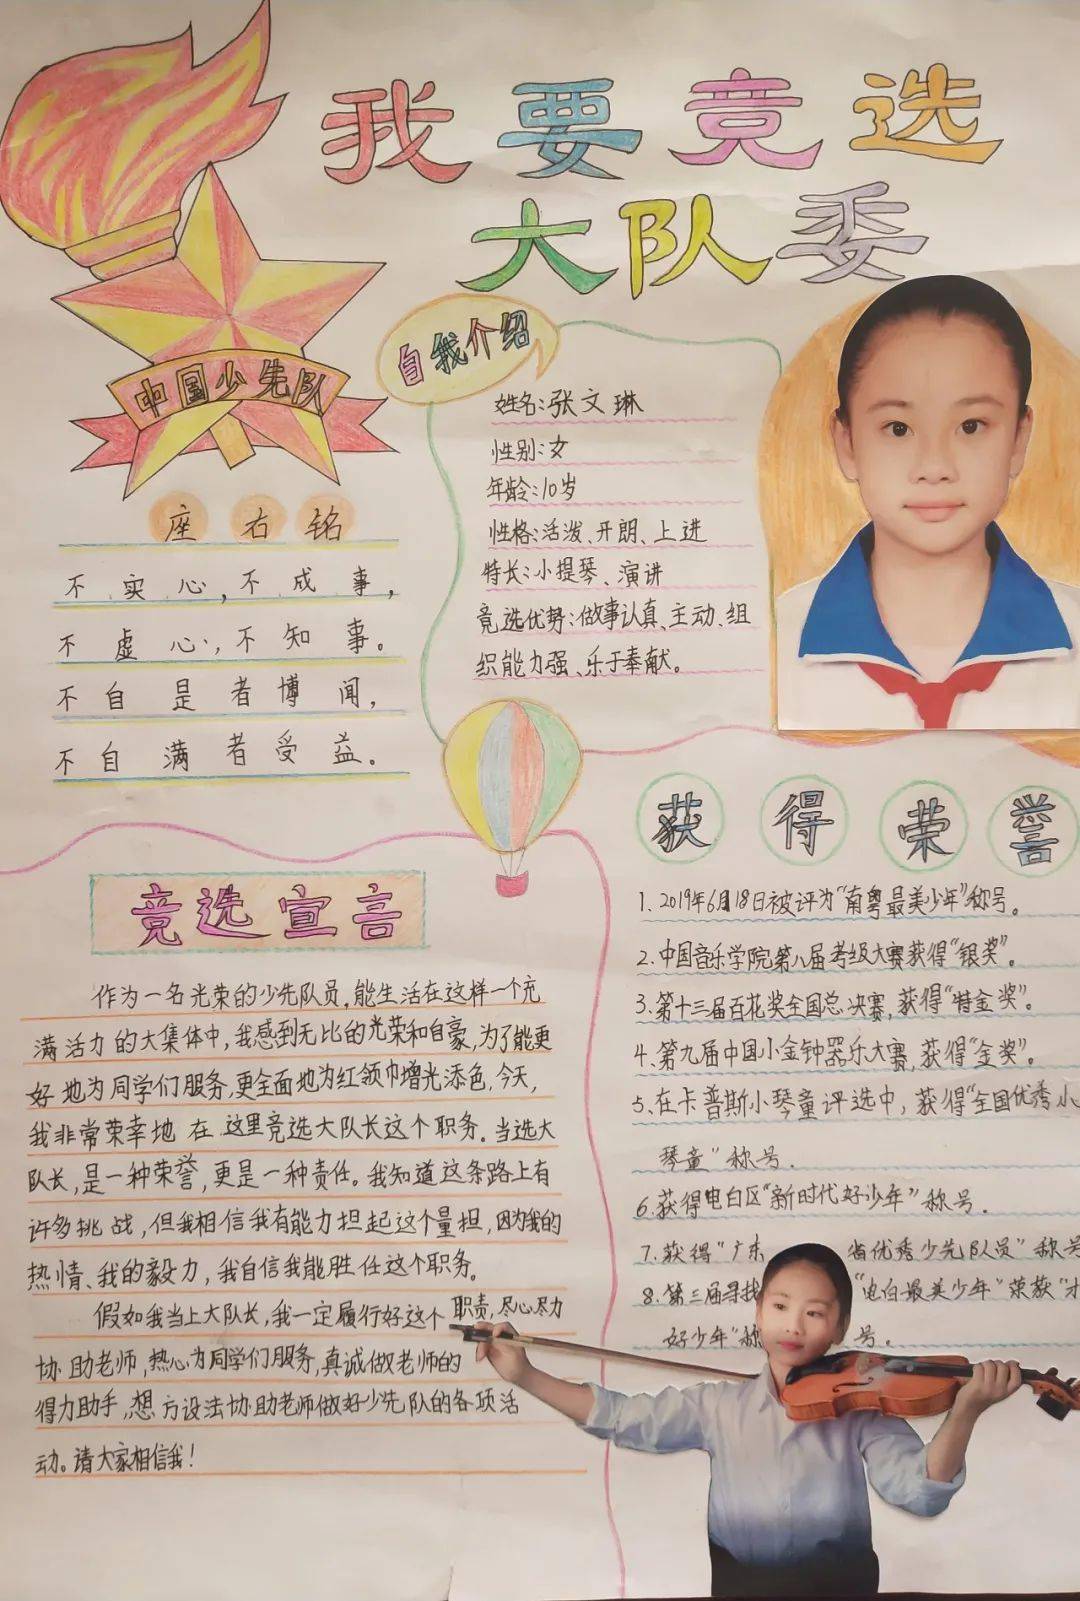 我要竞选
大队委
中国少先队
自我介绍
姓名:张文琳
性别:女
年龄:10岁
性格:活泼、开朗、上进
特长:小提琴、演讲
竞选优势:做事认真、主动、组
织能力强、乐于奉献。
座右铭
不实心,不成事,
不虚心,不知事。
不自是者博闻,
不自满者受益。
竞选宣言
作为一名光荣的少先队员,能生活在这样一个充
满活力的大集体中,我感到无比的光荣和自豪,为了能更
好地为同学们服务,更全面地为红领巾增光添色,今天,
我非常荣幸地在这里竞选大队长这个职务。当选大
队长,是一种荣誉,更是一种责任。我知道这条路上有
许多挑战,但我相信我有能力担起这个量担,因为我的
热情、我的毅力,我自信我能胜任这个职务。
假如我当上大队长,我一定履行好这个职责,尽心尽力
协助老师,热心为同学们服务,真诚做老师的
得力助手,想方设法协助老师做好少先队的各项活
动。请大家相信我!
获得荣誉
1、2019年6月18日被评为“南粤最美少年”称号。
2.中国音乐学院第八届考级大赛获得“银奖”。
3.第十三届百花奖全国总决赛,获得“特金奖”。
4.第九届中国小金钟器乐大赛,获得“金奖”。
5、在卡普斯小琴童评选中,获得“全国优秀小
琴童”称号.
6.获得电白区“新时代好少年”称号.
7.获得“广东省优秀少先队员”称号
8.第三届寻找“电白最美少年”荣获“才
好少年”称号.